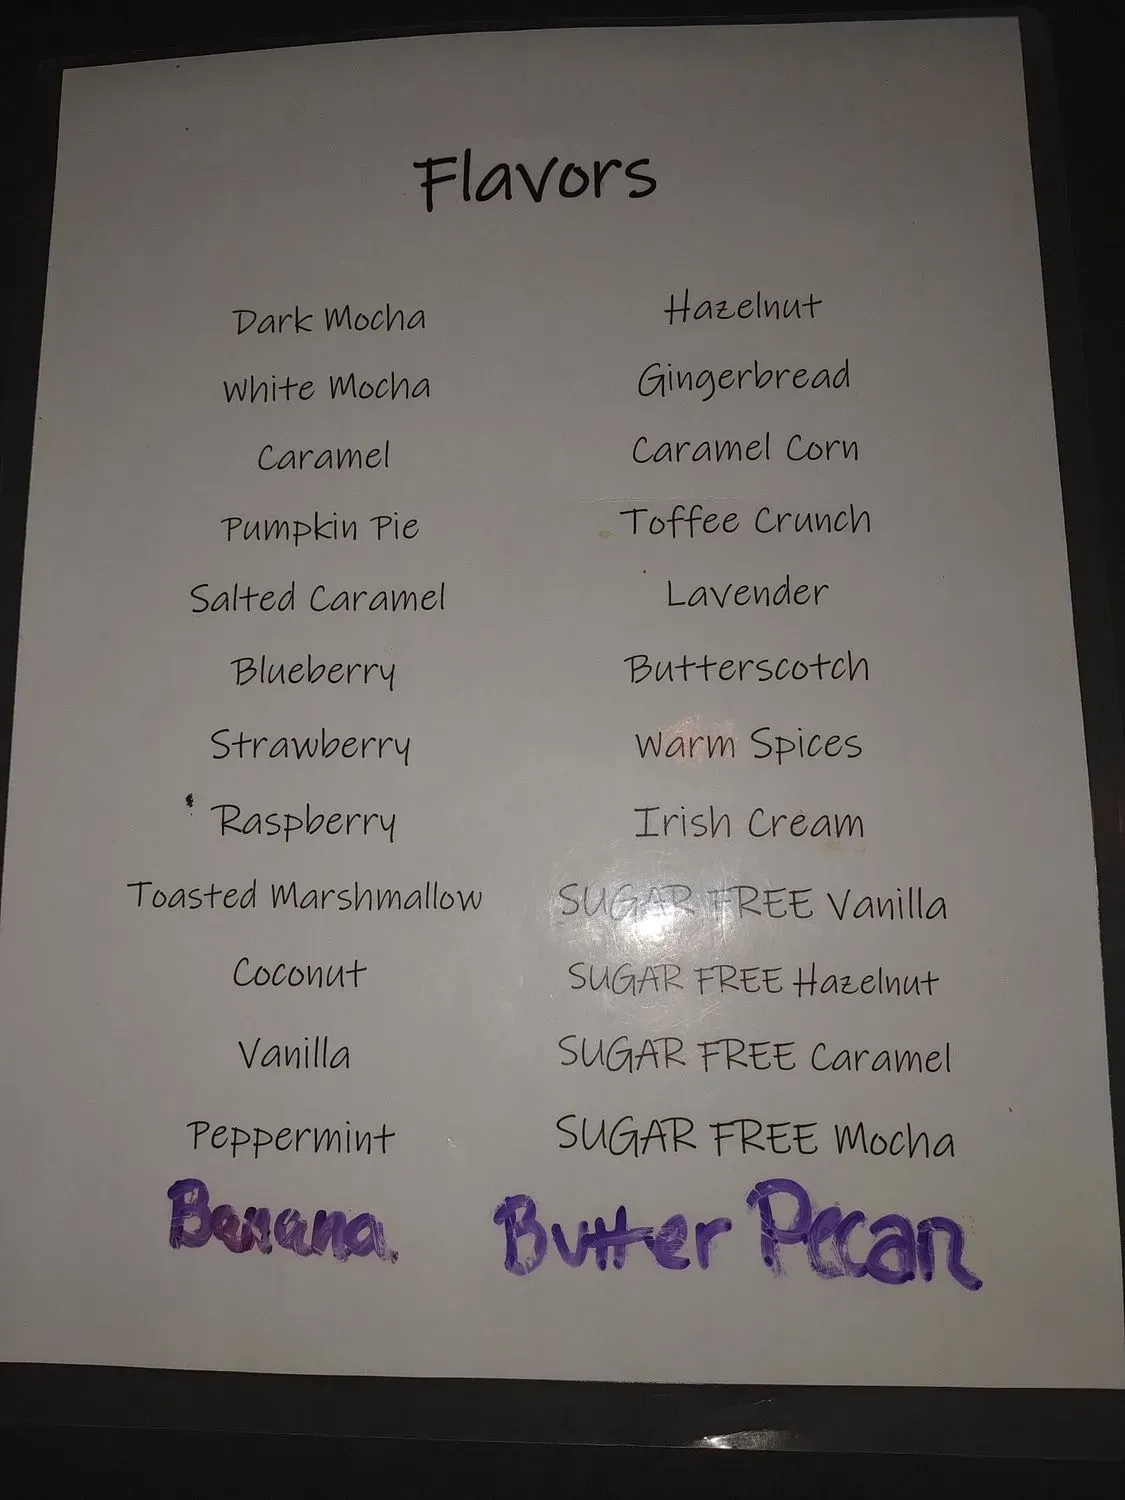 Flavors
Dark Mocha
White Mocha
Caramel
Pumpkin Pie
Salted Caramel
Blueberry
Strawberry
Raspberry
Toasted Marshmallow
Coconut
Vanilla
Peppermint
Banana
Hazelnut
Gingerbread
Caramel Corn
Toffee Crunch
Lavender
Butterscotch
Warm Spices
Irish Cream
SUGAR FREE Vanilla
SUGAR FREE Hazelnut
SUGAR FREE Caramel
SUGAR FREE Mocha
Butter Pecan